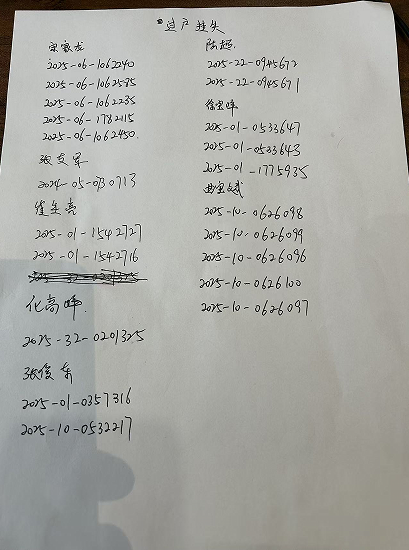 过户挂失
2025-06-1062240
2025-06-1062575
2025-06-1062235
2025-06-1782115
2025-06-1062450
张友军
2024-05-0730713
崔生亮
2025-01-1542727
2025-01-1542716
化高峰
2025-32-0201325
张俊东
2025-01-0357316
2025-10-0532217
陈超
2025-22-0945672
2025-22-0945671
2025-01-0533647
2025-01-0533643
2025-01-1775935
2025-10-0626098
2025-10-0626099
2025-10-0626096
2025-10-0626100
2025-10-0626097